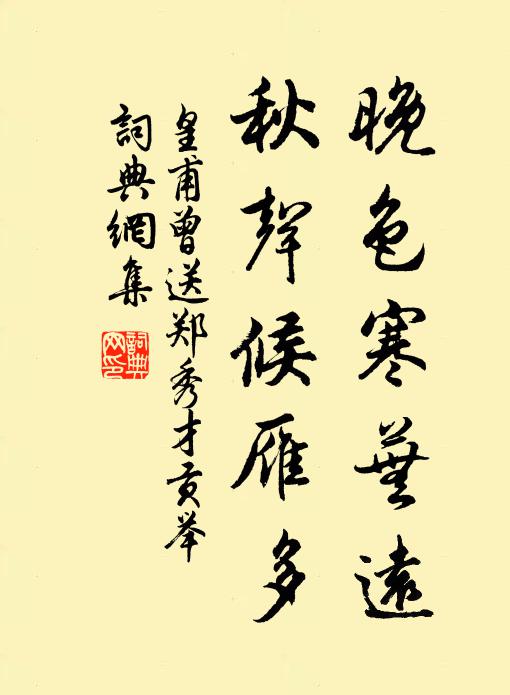 晚色寒蕪遠
秋聲候雁多
皇甫曾送郑秀才贡举
詞典網集
詞典網印